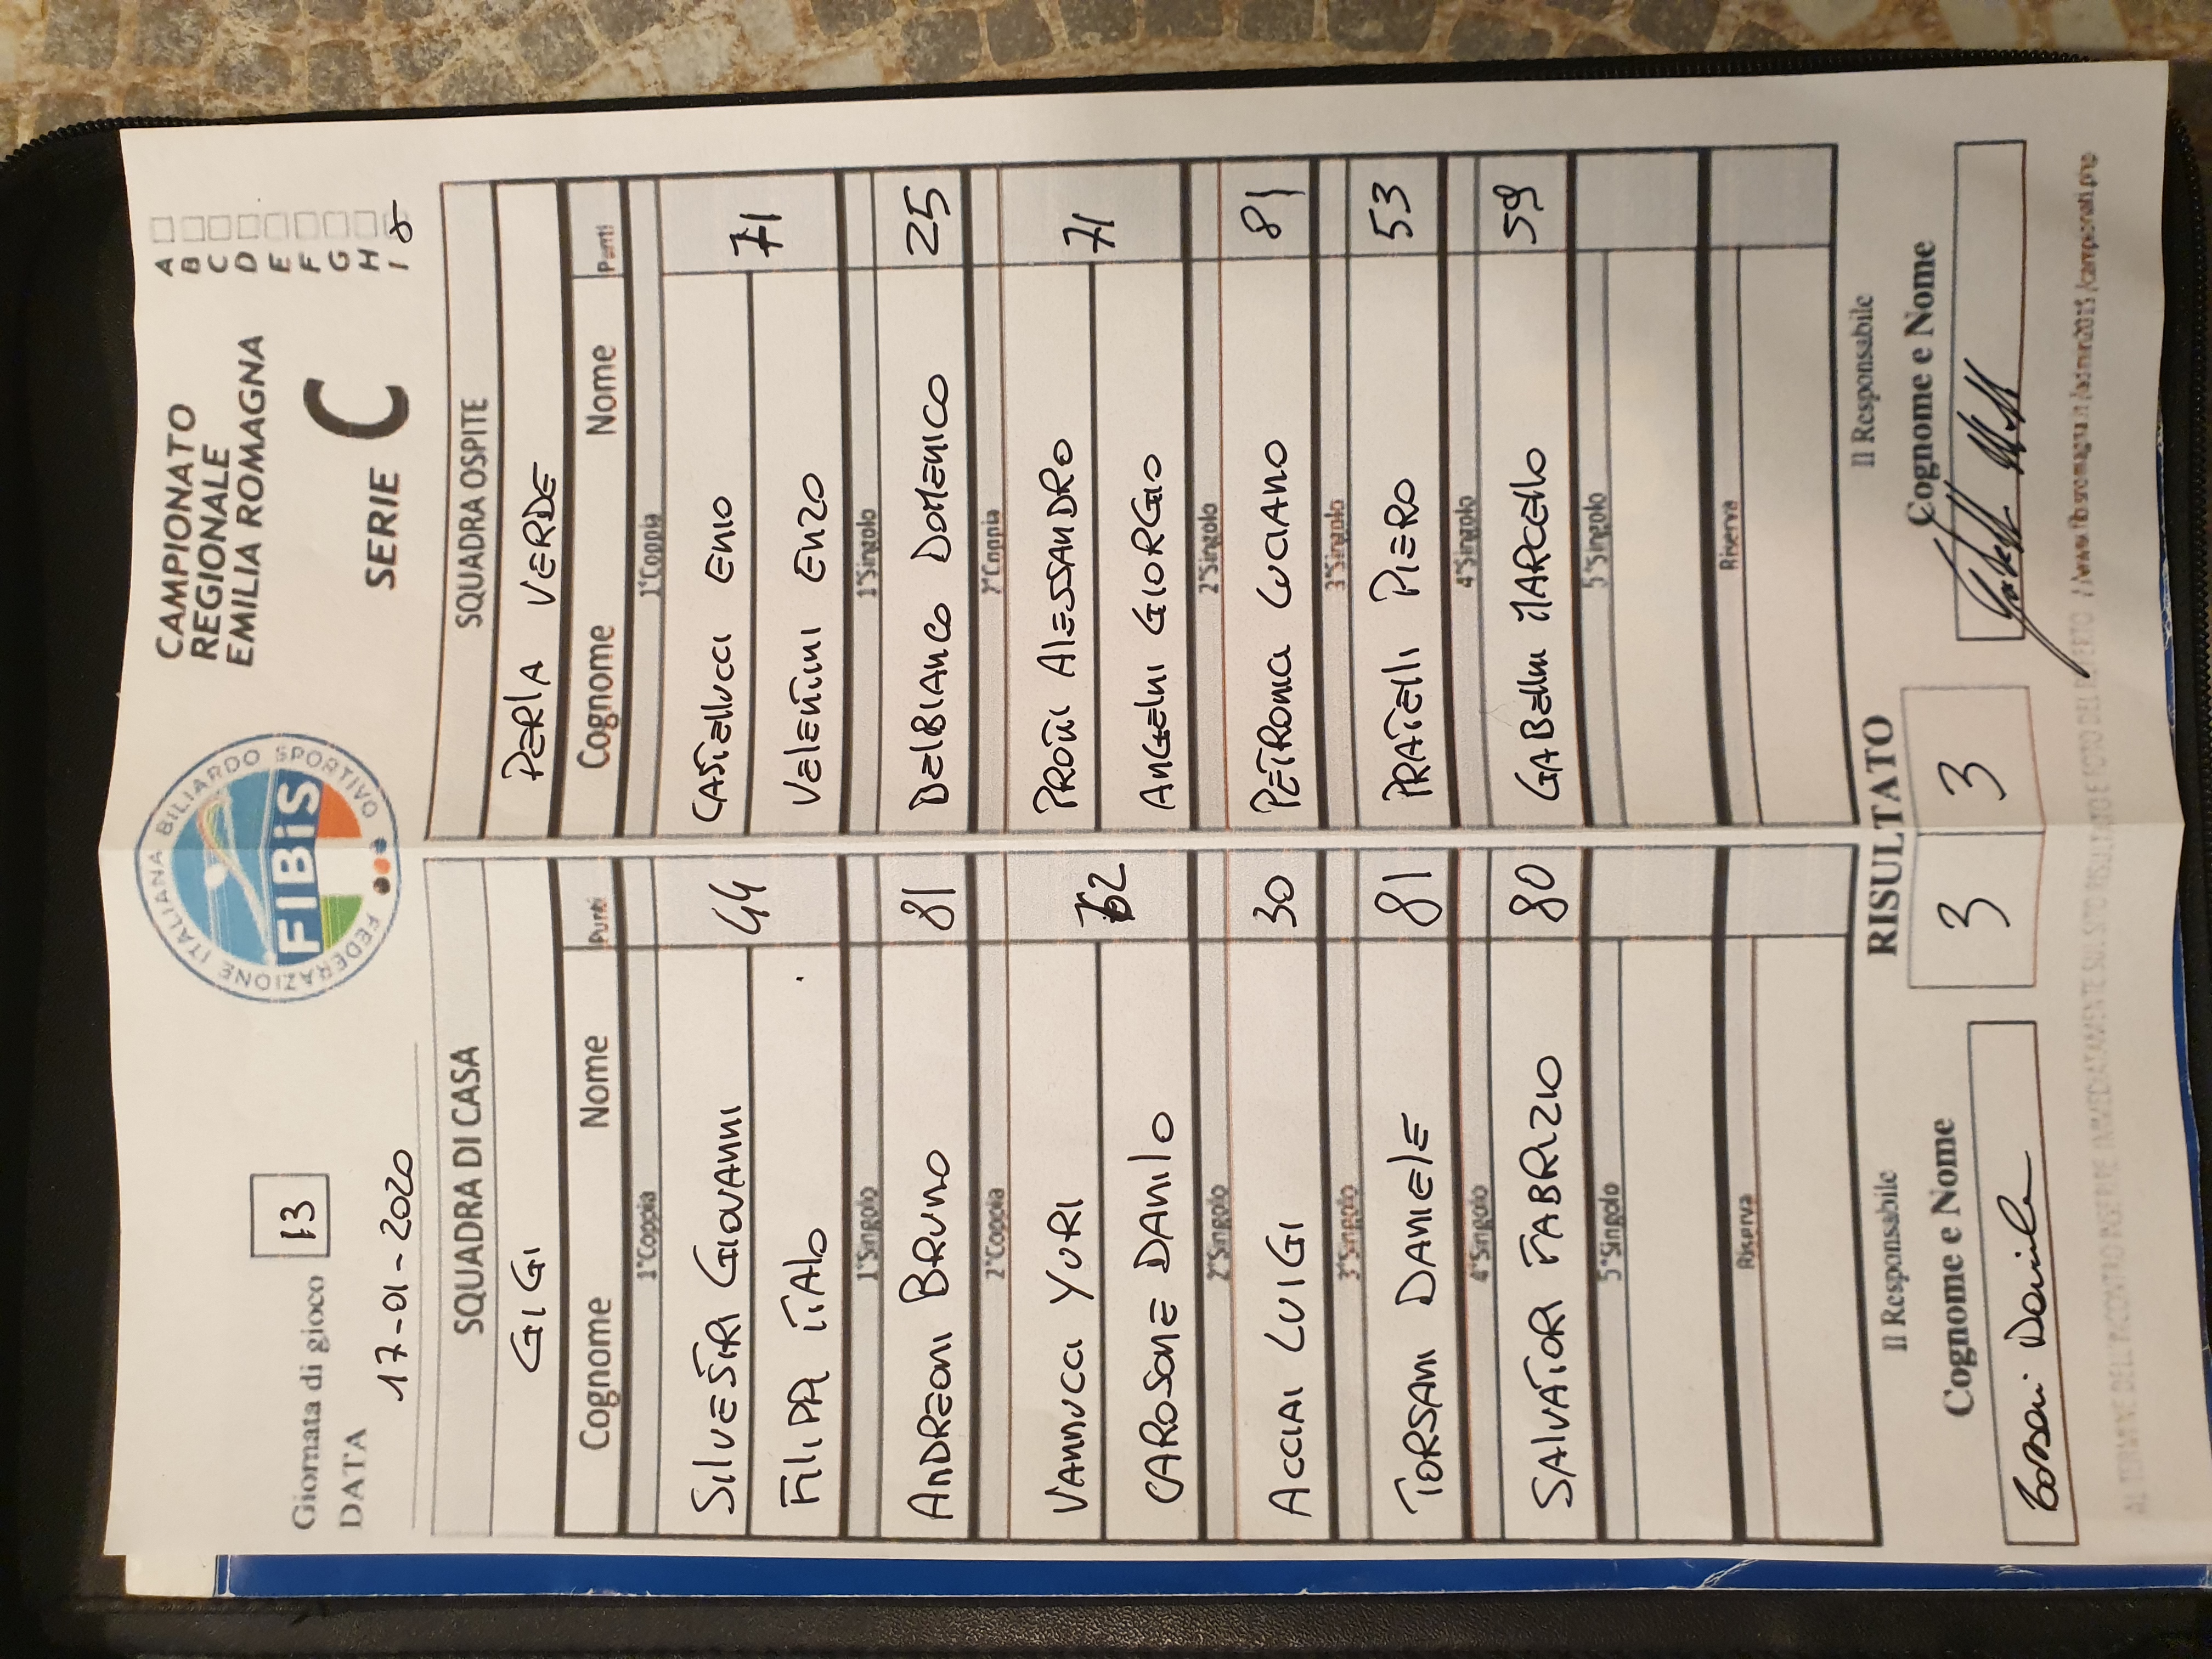 Giornata di gioco 13
DATA
17-01-2020
FEDERAZIONE ITALIANA BILIARDO SPORTIVO
FIBiS
CAMPIONATO
REGIONALE
EMILIA ROMAGNA
SERIE C
A
B
C
D
E
F
G
H
I
SQUADRA DI CASA SQUADRA OSPITE
GIGI PERLA VERDE
Cognome Nome Punti Cognome Nome Punti
1°Coppia 1°Coppia
SILVESTRI GIOVANNI 44 CASTELLUCCI ENIO 71
FILIPPI ITALO VALENTINI ENZO
1°Singolo 1°Singolo
ANDREONI BRUNO 81 DELBIANCO DOMENICO 25
2°Coppia 2°Coppia
VANNUCCI YURI 62 PROTTI ALESSANDRO 71
CAROSONE DANILO ANGELINI GIORGIO
2°Singolo 2°Singolo
ACCIAI LUIGI 30 PETROMA LUCIANO 81
3°Singolo 3°Singolo
TORSANI DANIELE 81 PRATELLI PIERO 53
4°Singolo 4°Singolo
SALVATORI FABRIZIO 80 GABELLINI MARCELLO 59
5°Singolo 5°Singolo
Riserva Riserva
Il Responsabile RISULTATO Il Responsabile
Cognome e Nome 3 3 Cognome e Nome
Torsani Daniele
AL TERMINE DELL'INCONTRO INSERIRE IMMEDIATAMENTE SUL SITO RISULTATO E FOTO DEL REFERTO